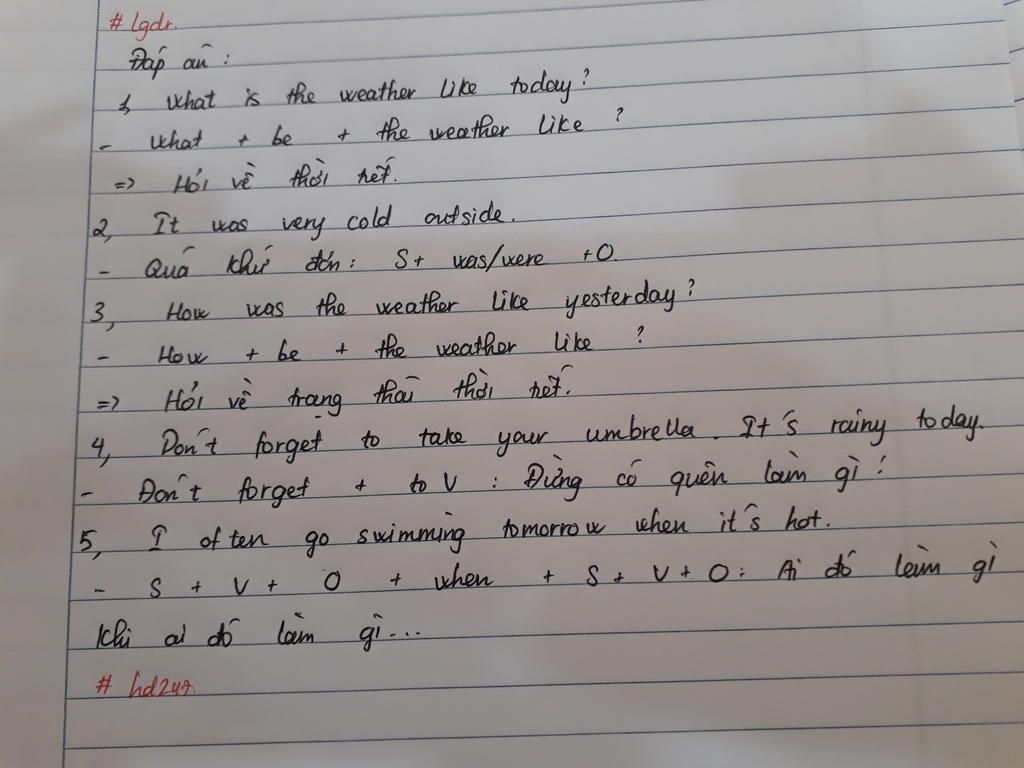 # lgdr.
Đáp án :
1, What is the weather like today?
- What + be + the weather like ?
=> Hỏi về thời tiết.
2, It was very cold outside.
- Quá khứ đơn: S + was/were + O.
3, How was the weather like yesterday?
- How + be + the weather like ?
=> Hỏi về trạng thái thời tiết.
4, Don't forget to take your umbrella. It's rainy today.
- Don't forget + to V : Đừng có quên làm gì !
5, I often go swimming tomorrow when it's hot.
- S + V + O + when + S + V + O : Ai đó làm gì
khi ai đó làm gì...
# hd247.